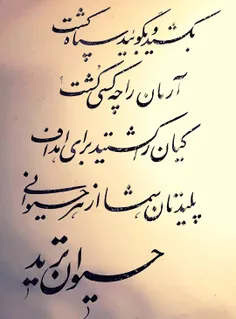 بکشید و بگویید سپاه کشت
آرمان را چه کسی کشت
کیان را کشتید برای اهداف
پلیدتان شما از هر حیوانی
حیوان ترید